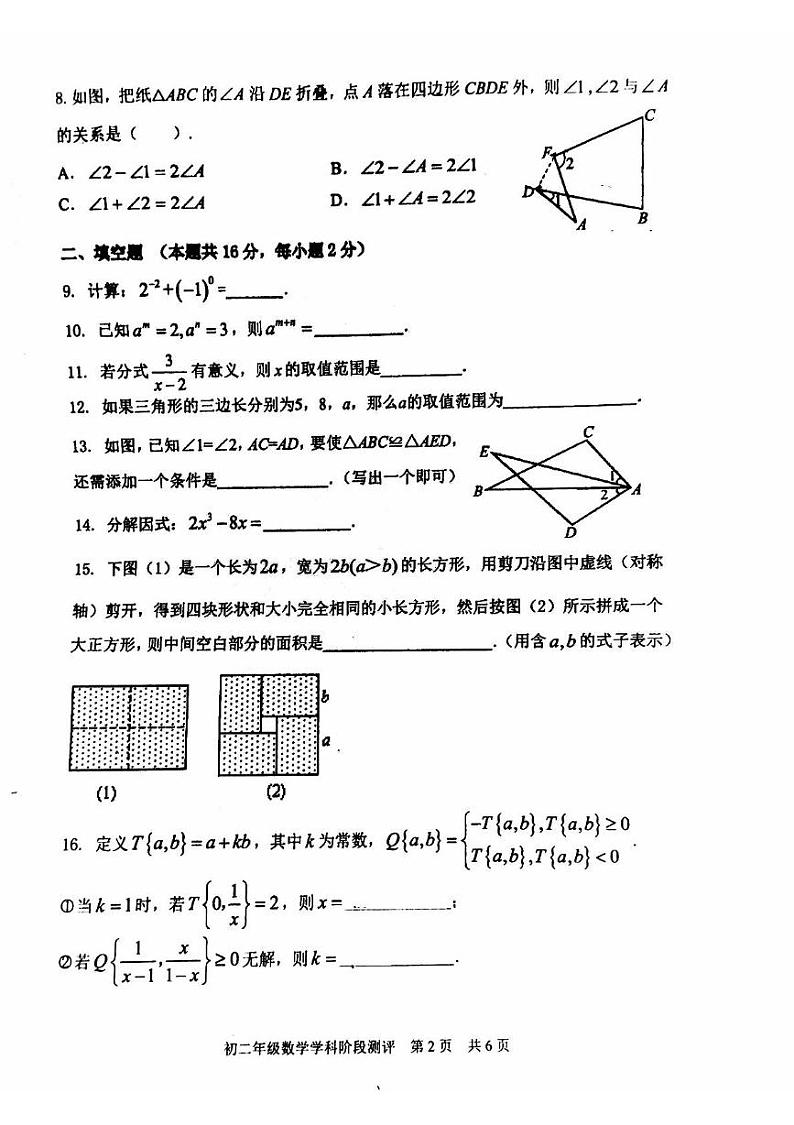 8. 如图，把纸△ABC 的∠A 沿 DE 折叠，点 A 落在四边形 CBDE 外，则∠1，∠2与∠A
的关系是（ ）.
A. ∠2－∠1=2∠A B. ∠2－∠A=2∠1
C. ∠1+∠2=2∠A D. ∠1+∠A=2∠2
C
F
2
D
1
A
B
二、填空题 （本题共 16 分，每小题 2 分）
9. 计算：2⁻²+(−1)⁰=______.
10. 已知 aᵐ=2,aⁿ=3，则 aᵐ⁺ⁿ=______.
11. 若分式 3/(x−2) 有意义，则 x 的取值范围是______.
12. 如果三角形的三边长分别为5，8，a，那么a的取值范围为______.
13. 如图，已知∠1=∠2，AC=AD，要使△ABC≌△AED，
还需添加一个条件是______.（写出一个即可）
C
E
1
A
B
2
D
14. 分解因式：2x³−8x=______.
15. 下图（1）是一个长为2a，宽为2b(a>b)的长方形，用剪刀沿图中虚线（对称
轴）剪开，得到四块形状和大小完全相同的小长方形，然后按图（2）所示拼成一个
大正方形，则中间空白部分的面积是______.（用含 a,b 的式子表示）
b
a
(1) (2)
16. 定义 T{a,b}=a+kb，其中 k 为常数，Q{a,b}={−T{a,b},T{a,b}≥0
T{a,b},T{a,b}<0 .
①当 k=1时，若 T{0,1/x}=2，则 x=______；
②若 Q{1/(x−1),x/(1−x)}≥0无解，则 k=______.
初二年级数学学科阶段测评 第 2 页 共 6 页